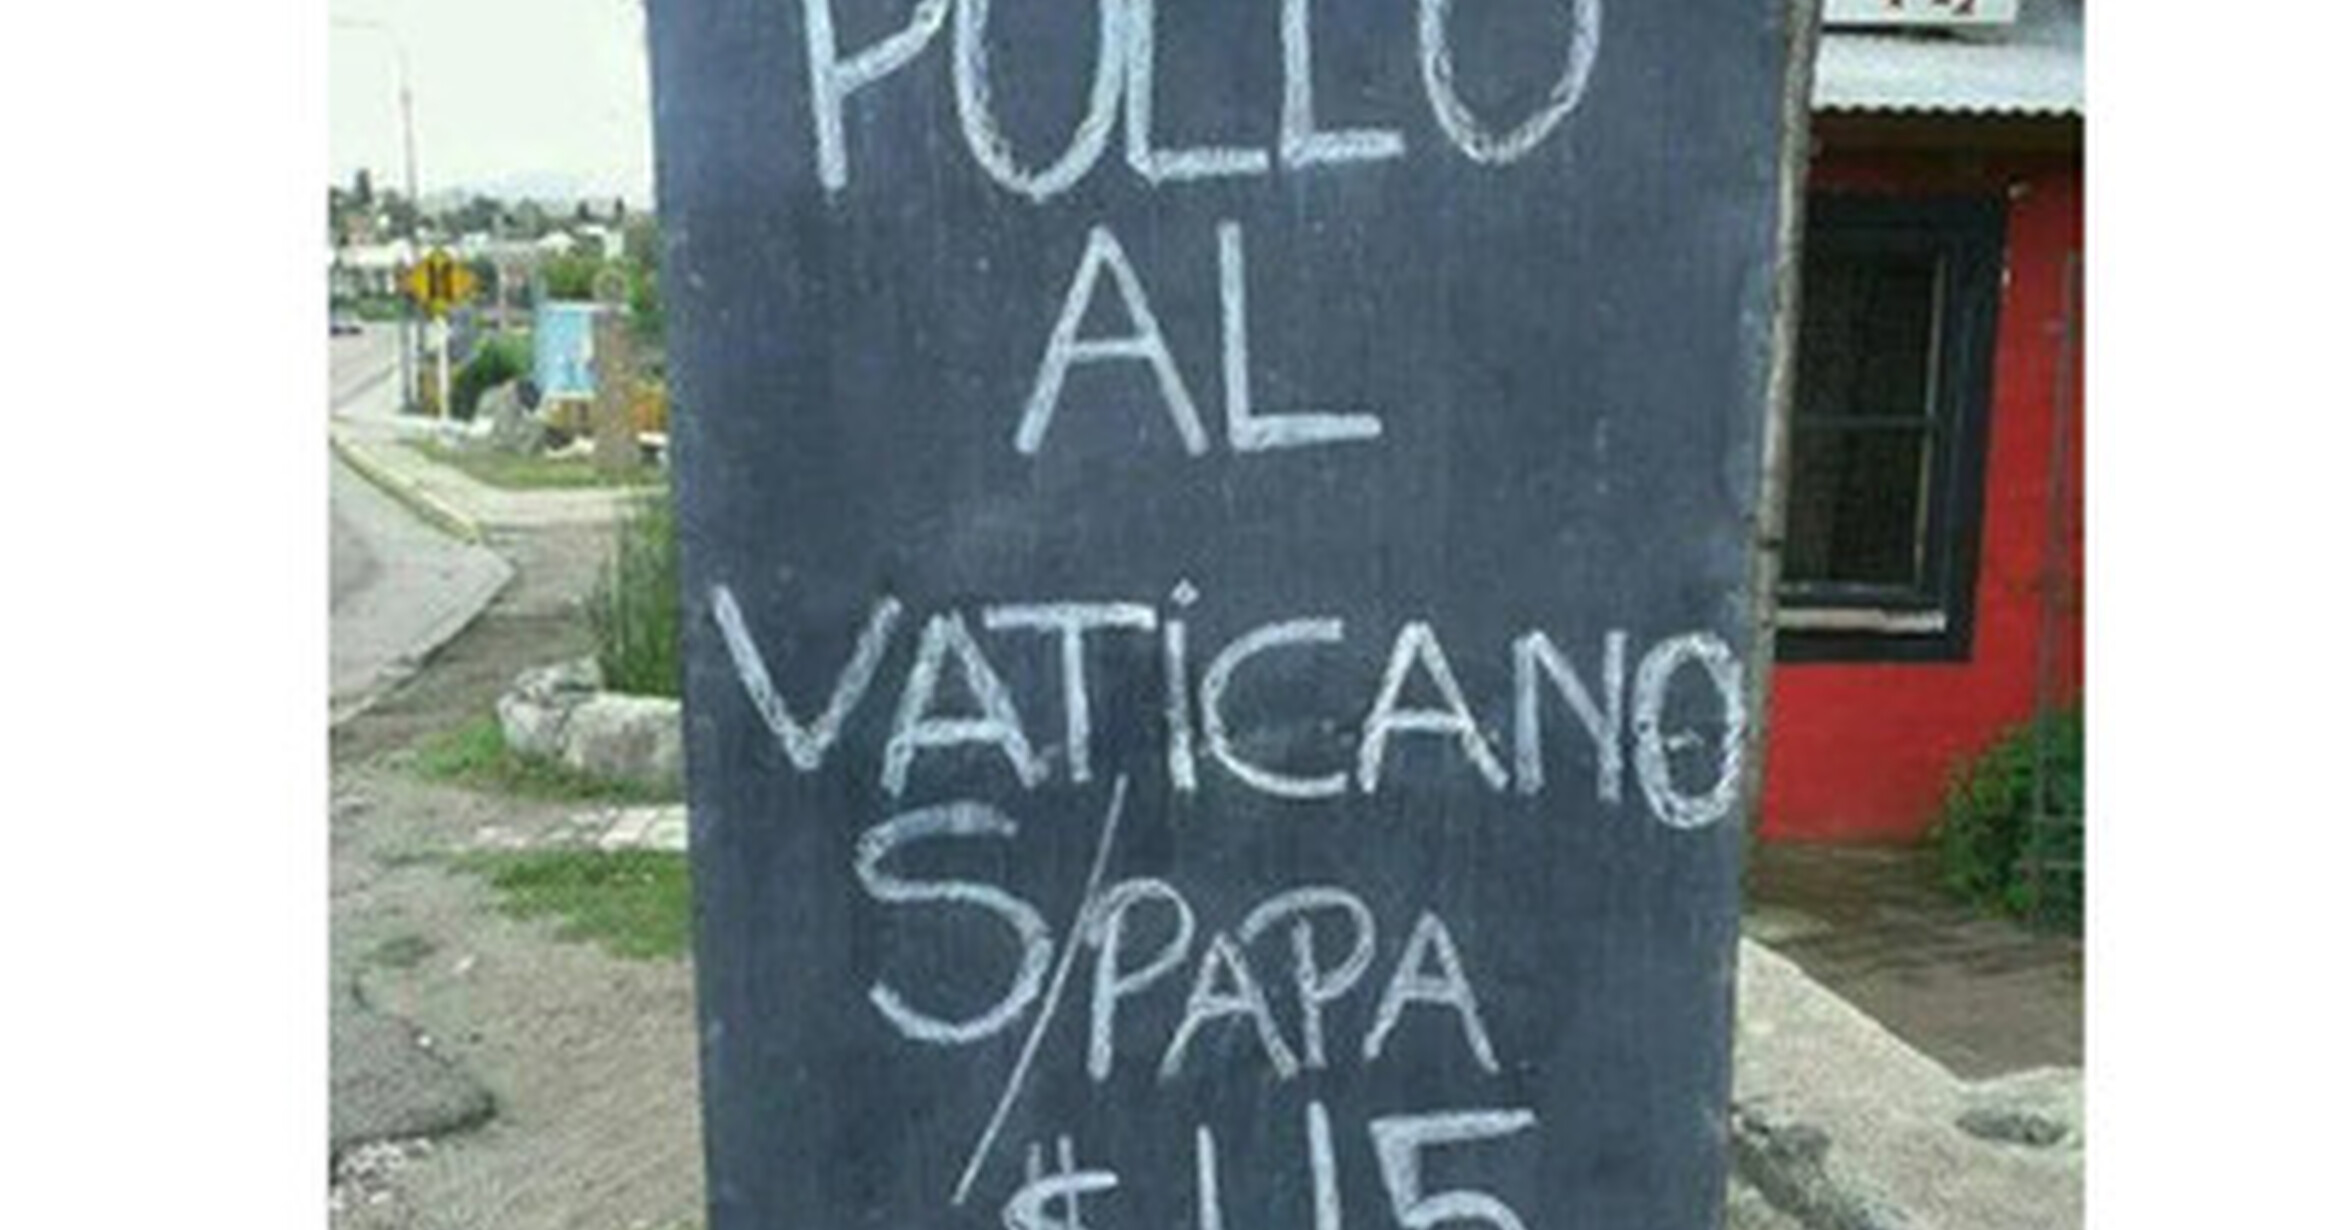 POLLO
AL
VATiCANO
S/PAPA
$115